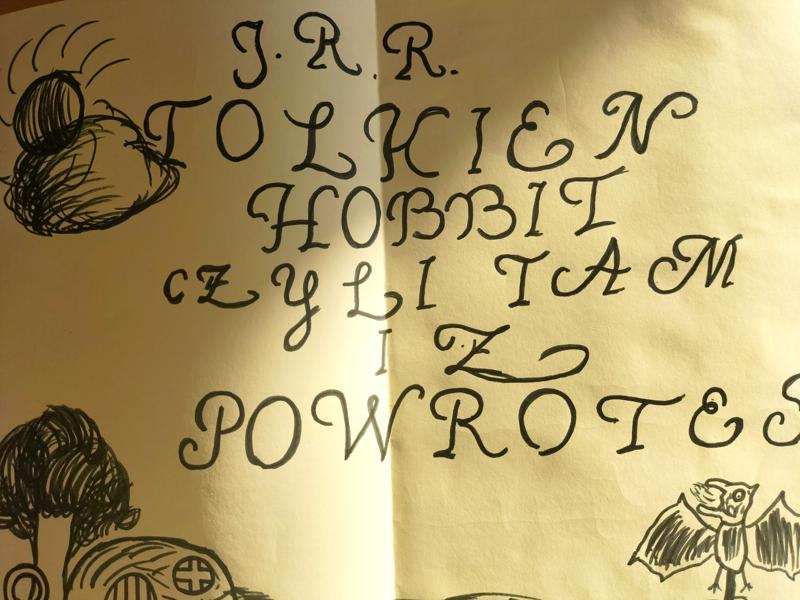 J.R.R.
TOLKIEN
HOBBIT
CZYLI TAM
I Z
POWROTES